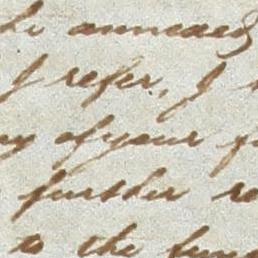 annexed
I refer, I
of your
further
to the